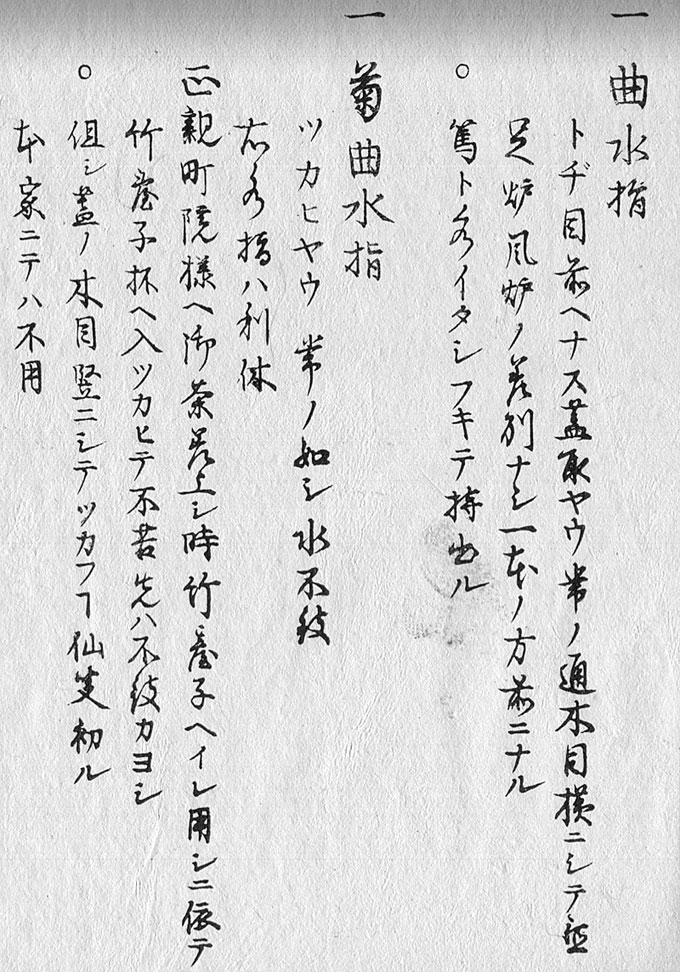 一 曲水指
トヂ目前ヘナス蓋取ヤウ常ノ通木目横ニシテ置
足炉風炉ノ差別ナシ一本ノ方前ニナル
○ 篤ト水イタシフキテ持出ル
一 菊曲水指
ツカヒヤウ常ノ如シ水不殘
右水指ハ利休
正親町院様ヘ御茶差上シ時竹台子ヘイレ用シニ依テ
竹台子抔ヘ入ツカヒテ不苦先ハ不殘カヨシ
○ 但シ蓋ノ木目竪ニシテツカフヿ仙叟初ル
本家ニテハ不用